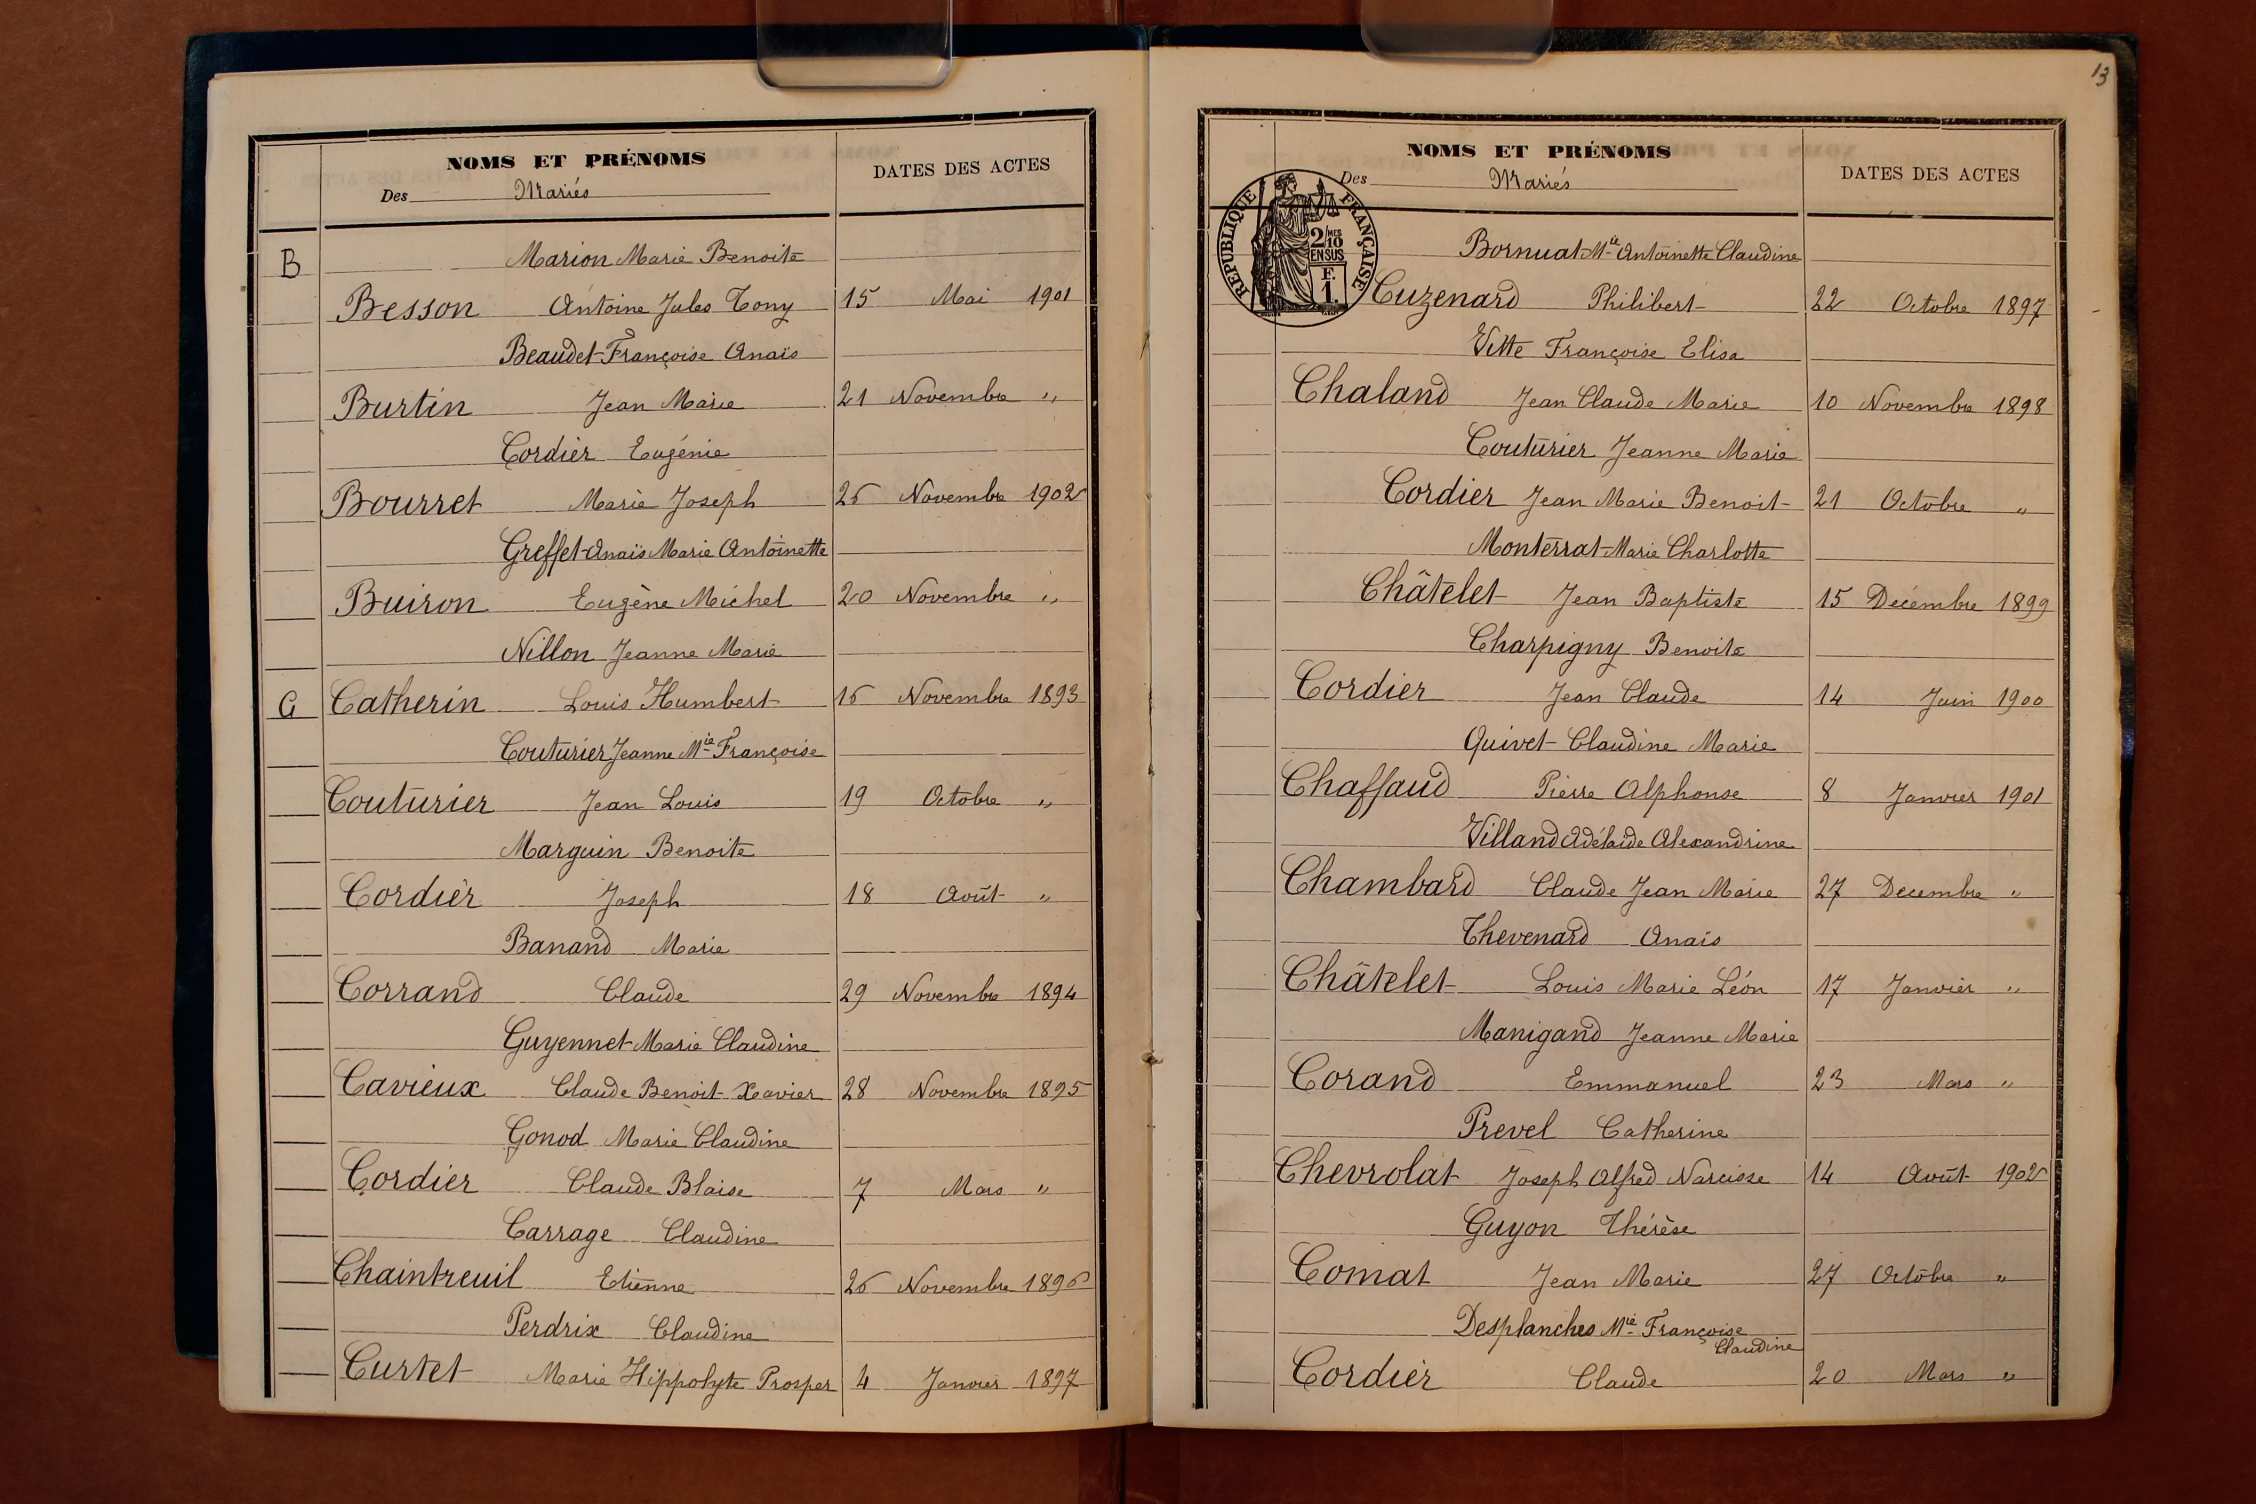 NOMS ET PRÉNOMS
Des Mariés
DATES DES ACTES
B
Marion Marie Benoite
Besson Antoine Jules Tony 15 Mai 1901
Beaudet Françoise Anaïs
Burtin Jean Marie 21 Novembre "
Cordier Eugénie
Bourret Marie Joseph 26 Novembre 1902
Greffet Anaïs Marie Antoinette
Buiron Eugène Michel 20 Novembre "
Nillon Jeanne Marie
C Catherin Louis Humbert 16 Novembre 1893
Couturier Jeanne Mie Françoise
Couturier Jean Louis 19 Octobre "
Marguin Benoite
Cordier Joseph 18 Août "
Banand Marie
Corrand Claude 29 Novembre 1894
Guyennet Marie Claudine
Cavieux Claude Benoit Xavier 28 Novembre 1895
Gonod Marie Claudine
Cordier Claude Blaise 7 Mars "
Carrage Claudine
Chaintreuil Etienne 26 Novembre 1896
Perdrix Claudine
Curtet Marie Hippolyte Prosper 4 Janvier 1897
13
NOMS ET PRÉNOMS
Des Mariés
DATES DES ACTES
RÉPUBLIQUE FRANÇAISE
2 MES
10
EN SUS
F.
1.
Bornuat Mie Antoinette Claudine
Cuzenard Philibert 22 Octobre 1897
Vitte Françoise Elisa
Chaland Jean Claude Marie 10 Novembre 1898
Couturier Jeanne Marie
Cordier Jean Marie Benoit 21 Octobre "
Monterrat Marie Charlotte
Châtelet Jean Baptiste 15 Décembre 1899
Charpigny Benoite
Cordier Jean Claude 14 Juin 1900
Quivet Claudine Marie
Chaffaud Pierre Alphonse 8 Janvier 1901
Villand Adélaïde Alexandrine
Chambard Claude Jean Marie 27 Decembre "
Thevenard Anaïs
Châtelet Louis Marie Léon 17 Janvier "
Manigand Jeanne Marie
Corand Emmanuel 23 Mars "
Prevel Catherine
Chevrolat Joseph Alfred Narcisse 14 Août 1902
Guyon Thérèse
Comat Jean Marie 27 Octobre "
Desplanches Mie Françoise
Claudine
Cordier Claude 20 Mars "